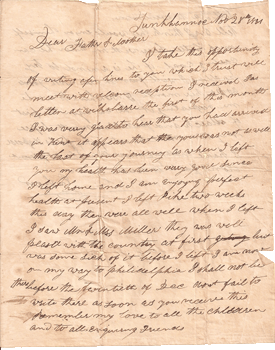 Tunkhannoc Nov 28th
Dear Father & Mother
I take this opportunity
of writing afew lines to you which I trust will
meet with welcome reception I receved I a
letter at wilksbarre the first of this month
I was very glad to hear that you had arrived
in it appears that the was not so well
the last of your journey as when I left
you my health has been very good since
I left home and I am enjoying perfect
health at present I left two weeks
this day they were all well when I left
I saw Mr & Mrs Miller they are well
pleasd with the country at first but
was some sick of it before I left I am now
on my way to philidelphia I shall not be
there before the twentieth of Dec Must fail to
write there as soon as you receive this
remember my love to all the children
and to all enquiring Friends